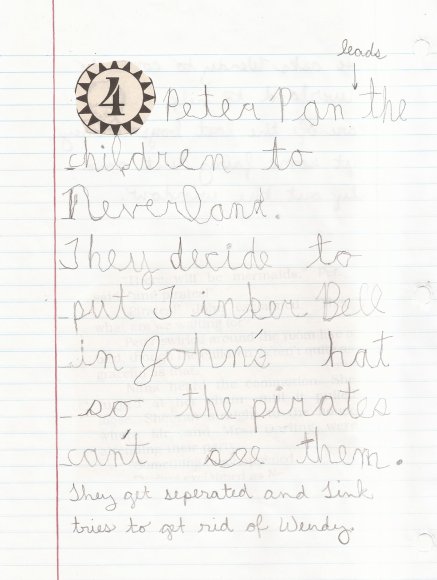 leads
4 Peter Pan the
children to
Neverland.
They decide to
put Tinker Bell
in John's hat
so the pirates
can't see them.
They get seperated and Tink
tries to get rid of Wendy.